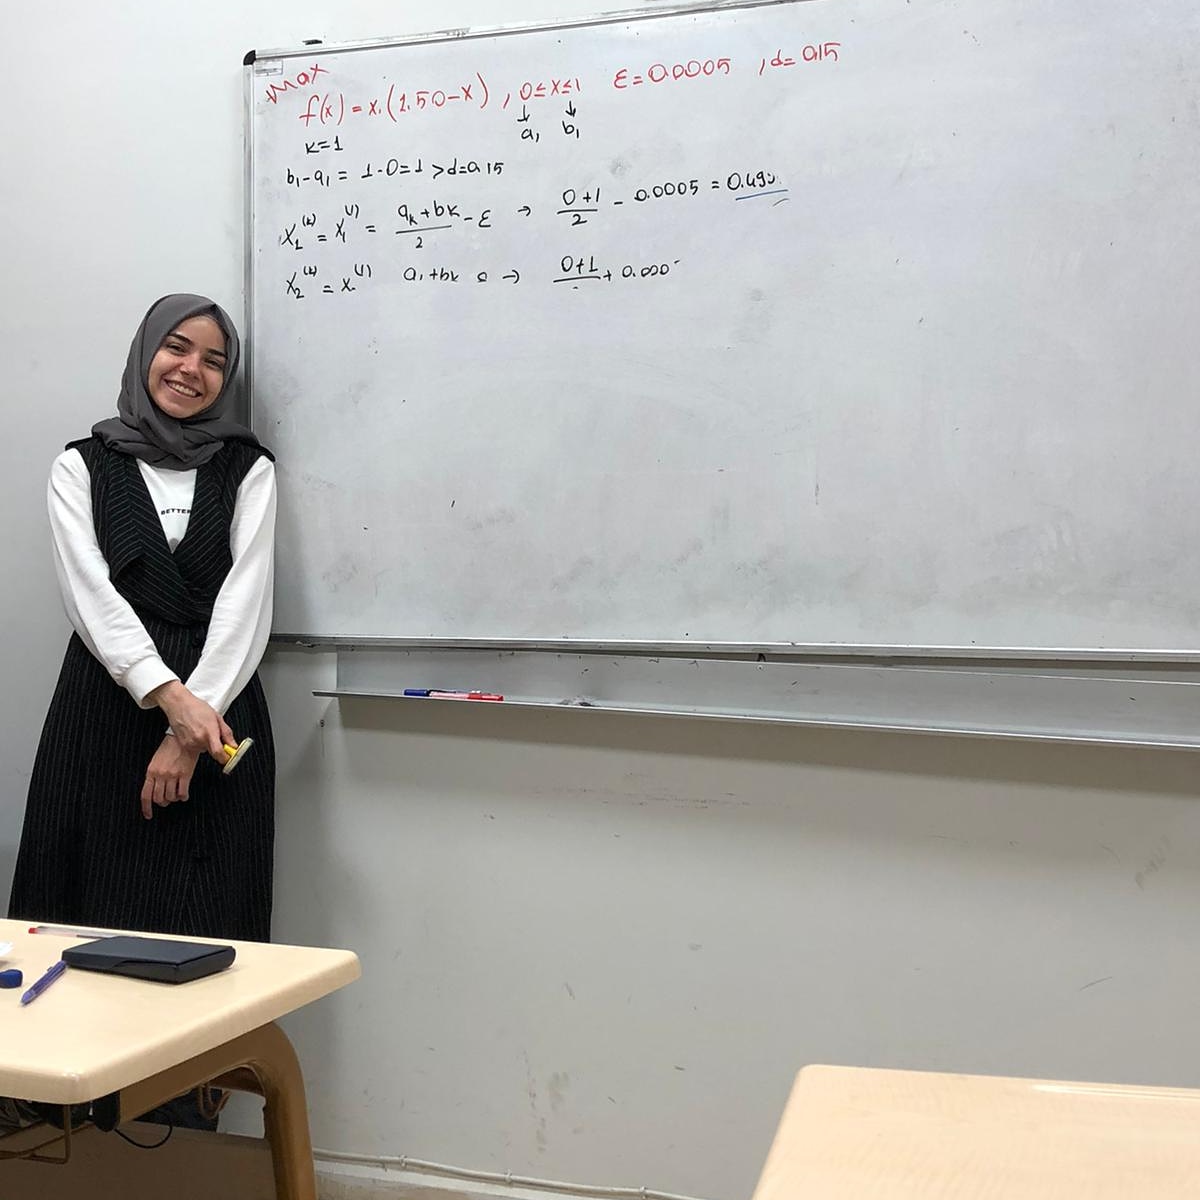 Max
f(x) = x.(1.50-x) , 0≤x≤1 ε=0.0005 , d= 0.15
↓ ↓
a₁ b₁
k=1
b₁-a₁ = 1-0=1 >d=0.15
x₁⁽ᵏ⁾ = x₁⁽¹⁾ = (aₖ+bₖ)/2 - ε → (0+1)/2 - 0.0005 =
x₂⁽ᵏ⁾ = → 0+1 +
BETTER